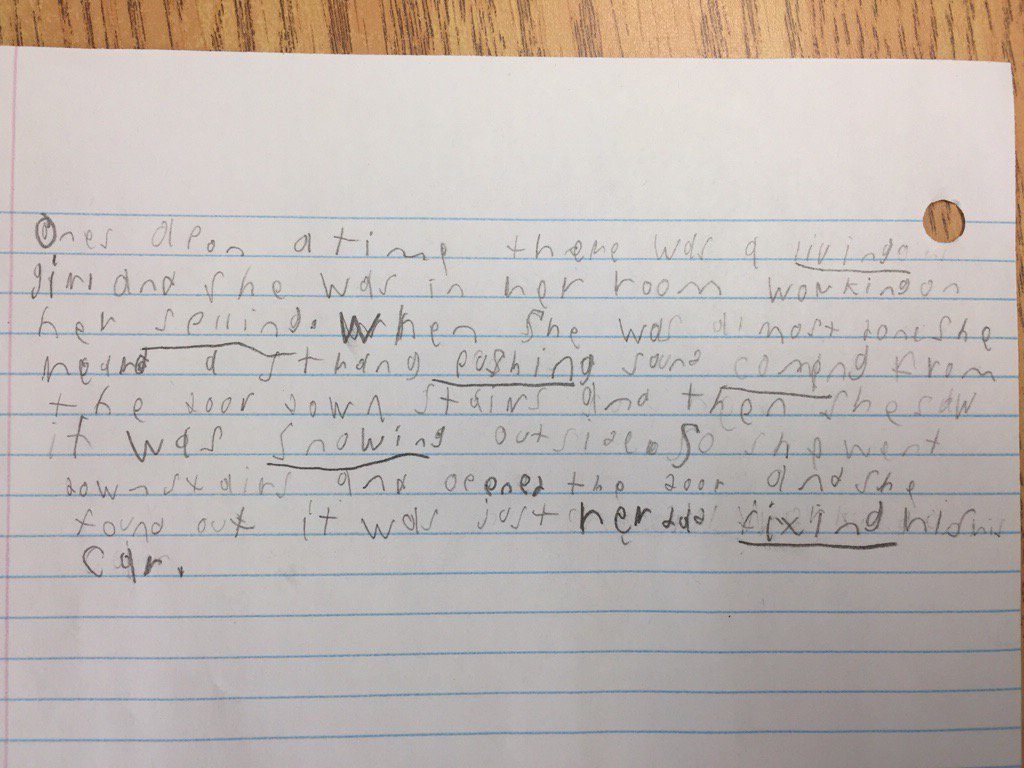 Ones apon a time there was a living
girl and she was in her room working on
her spelling. When She was almost done she
heard a strang pushing sound coming from
the door down stairs and then she saw
it was Snowing outside. So she went
down stairs and opened the door and she
found out it was just her dad fixing his
Car.